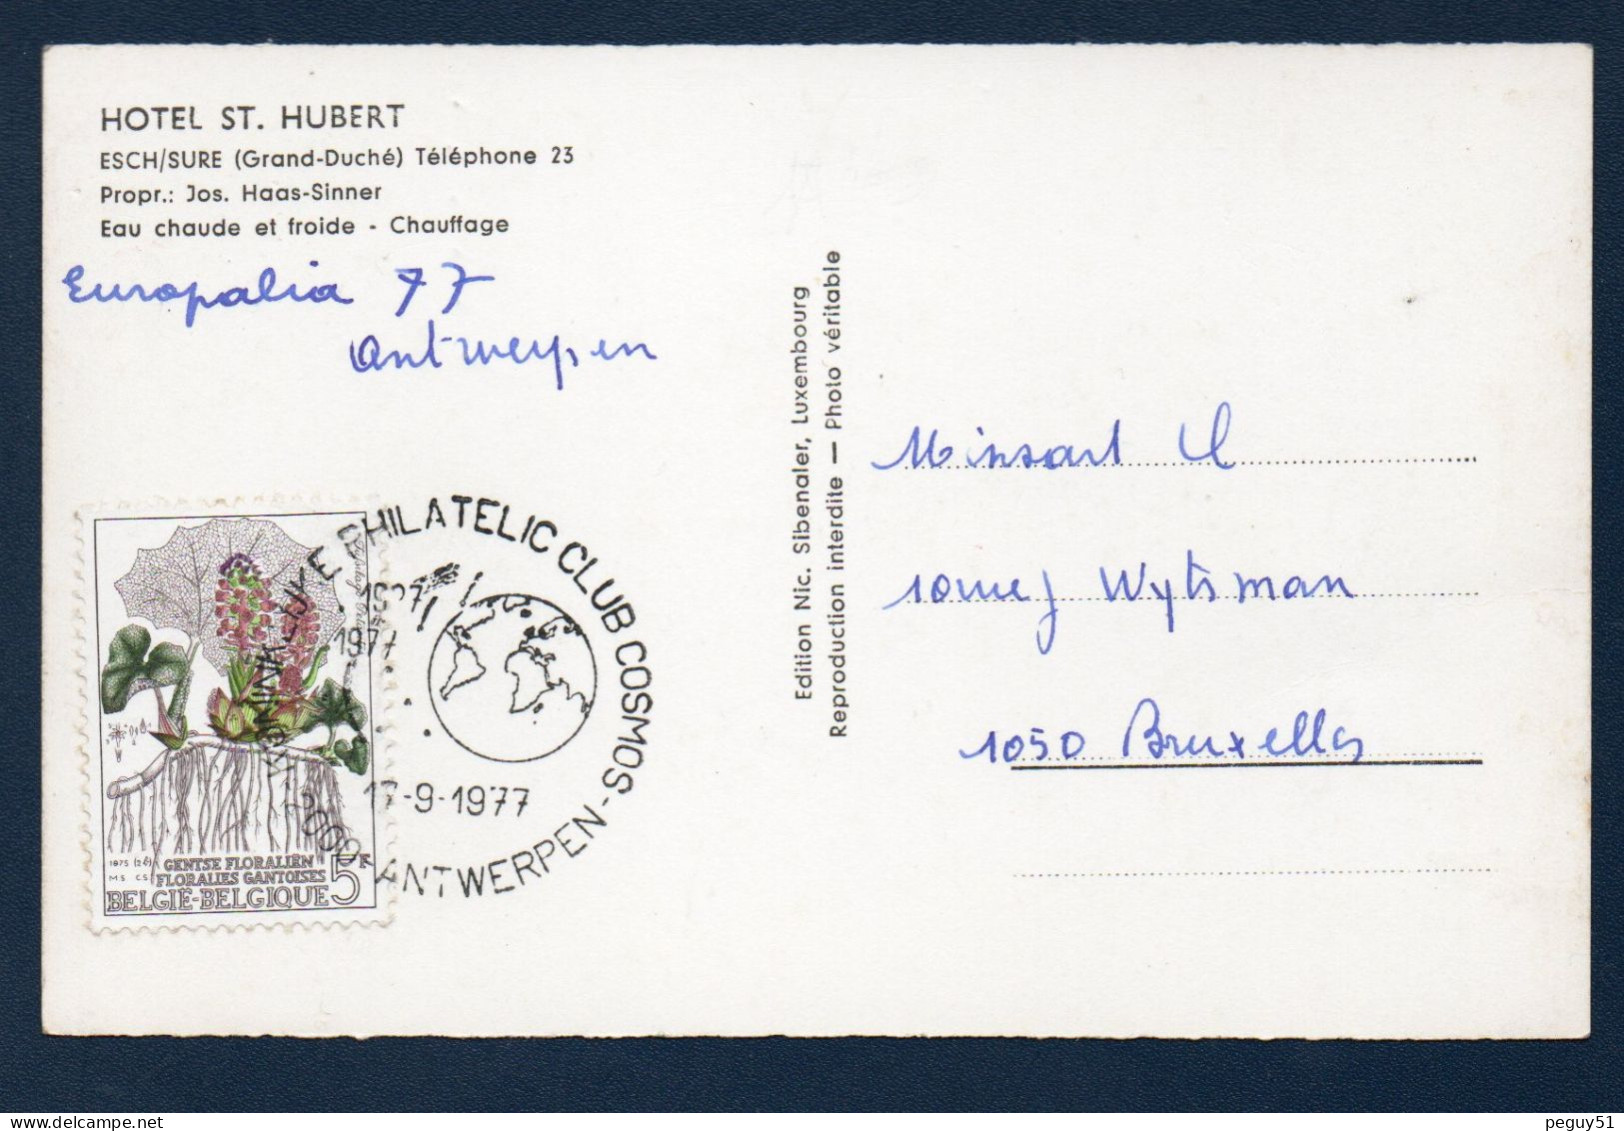 HOTEL ST. HUBERT
ESCH/SURE (Grand-Duché) Téléphone 23
Propr.: Jos. Haas-Sinner
Eau chaude et froide - Chauffage
Europalia 77
Antwerpen
Edition Nic. Sibenaler, Luxembourg
Reproduction interdite — Photo véritable
Minsart
Wytsman
1050 Bruxelles
KONINKLIJKE PHILATELIC CLUB COSMOS - 2000 ANTWERPEN -
1927
1977
17-9-1977
1975 (24)
M.S C.S
GENTSE FLORALIËN
FLORALIES GANTOISES
BELGIË-BELGIQUE 5F
peguy51